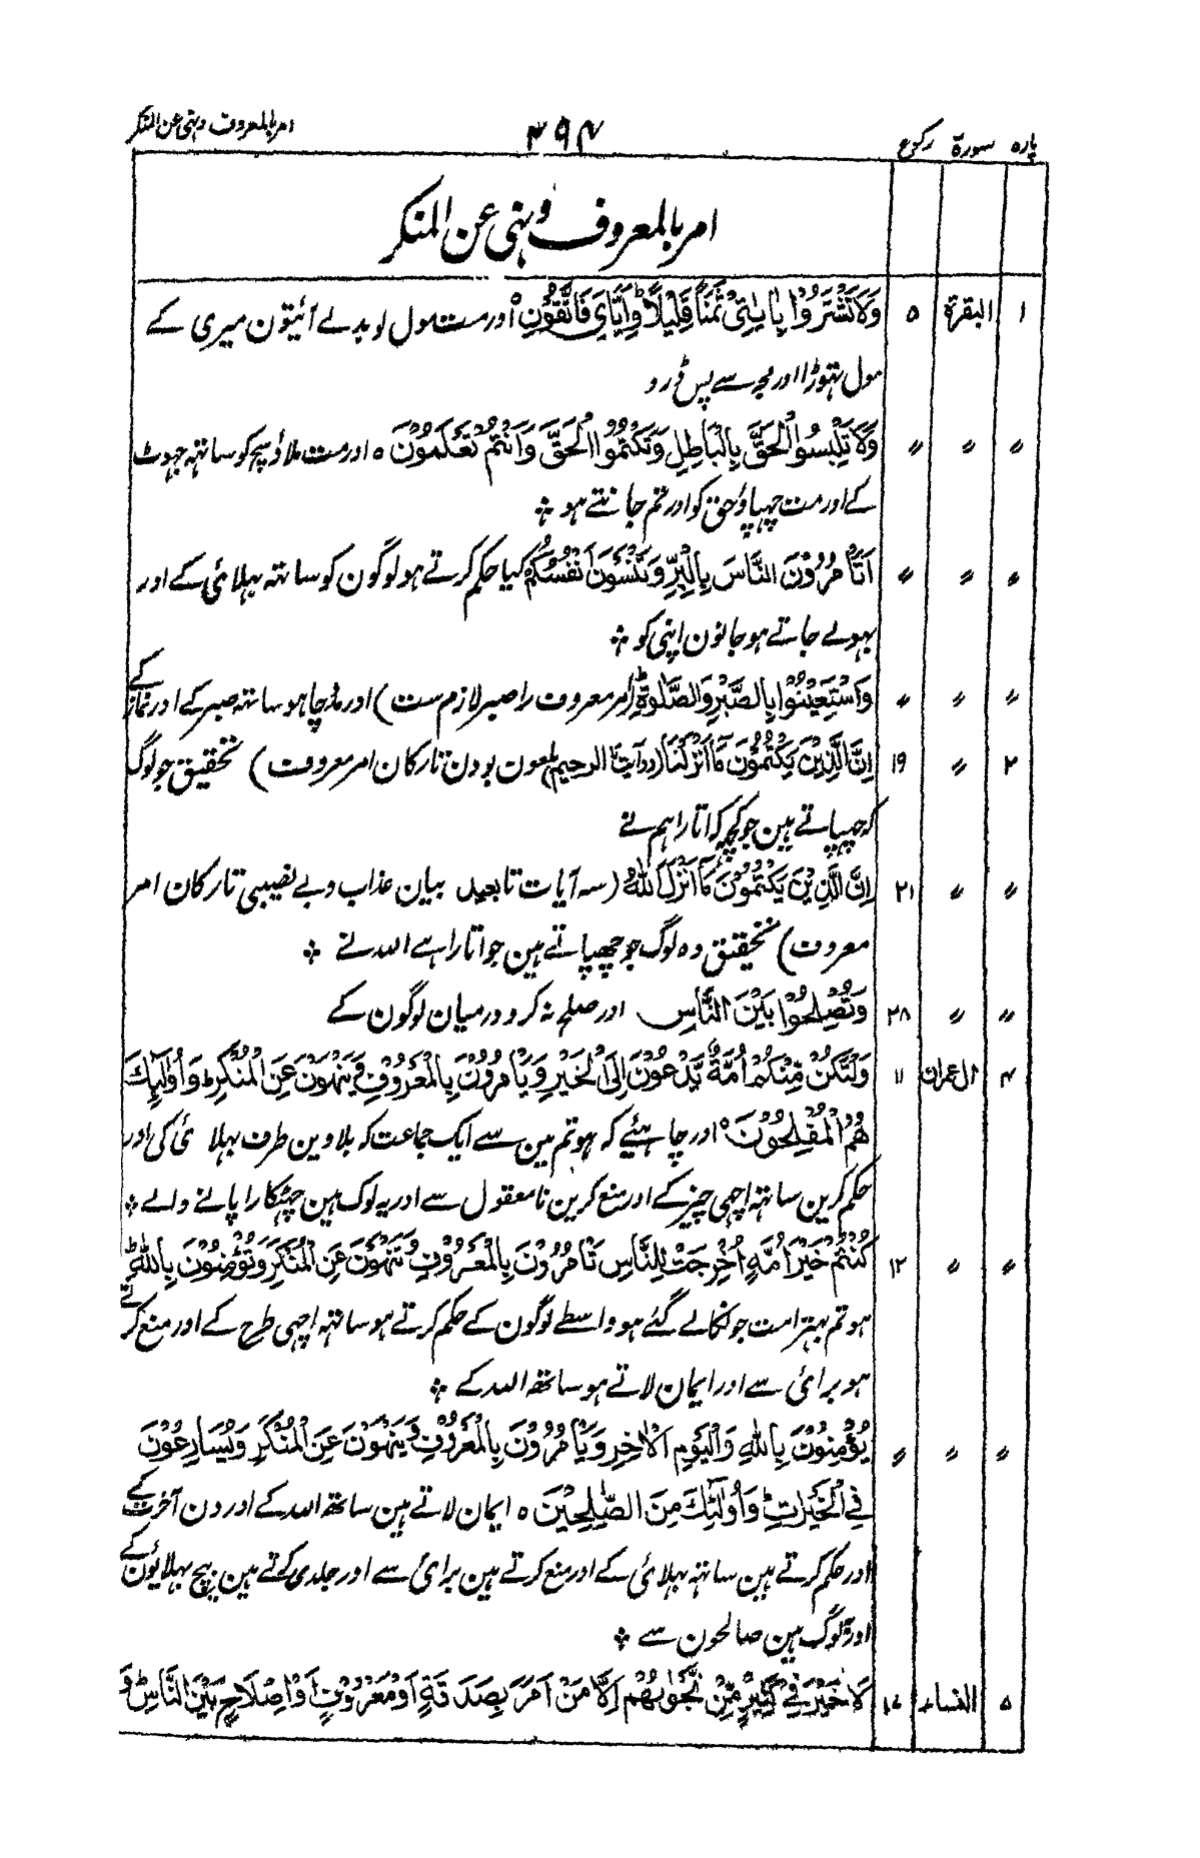 پارہ سورۃ رکوع ۳۹۴ امر بالمعروف و نہی عن المنکر
امر بالمعروف و نہی عن المنکر
۱ البقرۃ ۵ وَلَا تَشْتَرُوْا بِاٰیٰتِیْ ثَمَنًا قَلِیْلًا وَّاِیَّایَ فَاتَّقُوْنِ اور مت مول لو بدلے آئیتون میری کے
مول تہوڑا اور مجہ سے پس ڈرو
〃 〃 〃 وَلَا تَلْبِسُوا الْحَقَّ بِالْبَاطِلِ وَتَکْتُمُوا الْحَقَّ وَاَنْتُمْ تَعْلَمُوْنَ ہ اور مت ملاؤ سچ کو ساتہہ جہوٹ
کے اور مت چہپاؤ حق کو اور تم جانتے ہو ؞
〃 〃 〃 اَتَاْمُرُوْنَ النَّاسَ بِالْبِرِّ وَتَنْسَوْنَ اَنْفُسَکُمْ کیا حکم کرتے ہو لوگون کو ساتہہ بہلائی کے اور
بہولے جاتے ہو جانون اپنی کو ؞
〃 〃 〃 وَاسْتَعِیْنُوْا بِالصَّبْرِ وَالصَّلٰوۃِ (امر معروف را صبر لازم ست) اور مدد چاہو ساتہہ صبر کے اور نماز کے
۲ 〃 ۱۹ اِنَّ الَّذِیْنَ یَکْتُمُوْنَ مَا اَنْزَلْنَا (دو آیت تا الرحیم ملعون بودن تارکان امر معروف) تحقیق جو لوگ
کہ چہپاتے ہین جو کچہ کہ اتارا ہم نے
〃 〃 ۲۱ اِنَّ الَّذِیْنَ یَکْتُمُوْنَ مَا اَنْزَلَ اللہُ (سہ آیات تا بعید بیان عذاب و بے نصیبی تارکان امر
معروف) تحقیق وہ لوگ جو چھپاتے ہین جو اتارا ہے اللہ نے ؞
〃 〃 ۲۸ وَتُصْلِحُوْا بَیْنَ النَّاسِ اور صلح نہ کرو درمیان لوگون کے
۴ اٰل عمران ۱۱ وَلْتَکُنْ مِّنْکُمْ اُمَّۃٌ یَّدْعُوْنَ اِلَی الْخَیْرِ وَیَاْمُرُوْنَ بِالْمَعْرُوْفِ وَیَنْہَوْنَ عَنِ الْمُنْکَرِ ط وَاُولٰٓئِکَ
ہُمُ الْمُفْلِحُوْنَ ہ اور چاہیئے کہ ہو تم مین سے ایک جماعت کہ بلاوین طرف بہلائی کی اور
حکم کرین ساتہہ اچہی چیز کے اور منع کرین نامعقول سے اور یہ لوگ ہین چہٹکارا پانے والے ؞
〃 〃 ۱۲ کُنْتُمْ خَیْرَ اُمَّۃٍ اُخْرِجَتْ لِلنَّاسِ تَاْمُرُوْنَ بِالْمَعْرُوْفِ وَتَنْہَوْنَ عَنِ الْمُنْکَرِ وَتُؤْمِنُوْنَ بِاللہِ ط
ہو تم بہتر امت جو نکالے گئے ہو واسطے لوگون کے حکم کرتے ہو ساتہہ اچہی طرح کے اور منع کرتے
ہو برائی سے اور ایمان لاتے ہو ساتھ اللہ کے ؞
〃 〃 〃 یُؤْمِنُوْنَ بِاللہِ وَالْیَوْمِ الْاٰخِرِ وَیَاْمُرُوْنَ بِالْمَعْرُوْفِ وَیَنْہَوْنَ عَنِ الْمُنْکَرِ وَیُسَارِعُوْنَ
فِی الْخَیْرٰتِ ط وَاُولٰٓئِکَ مِنَ الصّٰلِحِیْنَ ہ ایمان لاتے ہین ساتھ اللہ کے اور دن آخرت کے
اور حکم کرتے ہین ساتہہ بہلائی کے اور منع کرتے ہین برائی سے اور جلدی کرتے ہین بیچ بہلائیون کے
اور یہ لوگ ہین صالحون سے ؞
۵ النساء ۱۷ لَا خَیْرَ فِیْ کَثِیْرٍ مِّنْ نَّجْوٰىہُمْ اِلَّا مَنْ اَمَرَ بِصَدَقَۃٍ اَوْ مَعْرُوْفٍ اَوْ اِصْلَاحٍ بَیْنَ النَّاسِ ط وَ